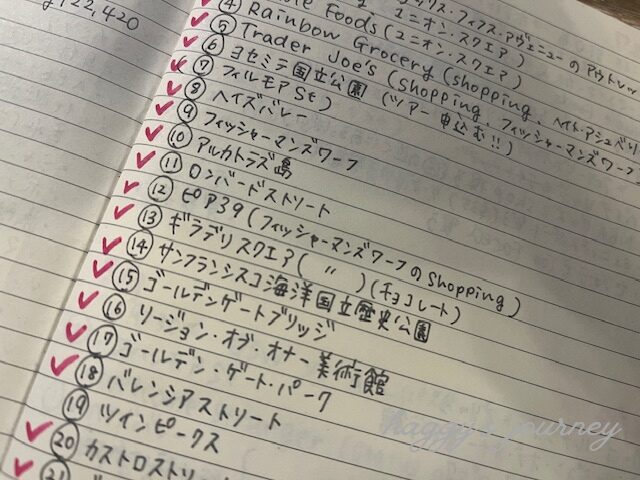 122,420
ックス・フィフス・アヴェニューのアウトレッ
ole Foods (ユニオン・スクエア)
④ Rainbow Grocery (shopping、ヘイト・アシュベリ
⑤ Trader Joe's (shopping、フィッシャーマンズワーフ
⑥ ヨセミテ国立公園 (ツアー申込む!!)
⑦ フィルモアSt)
⑧ ヘイズバレー
⑨ フィッシャーマンズワーフ
⑩ アルカトラズ島
⑪ ロンバードストリート
⑫ ピア39(フィッシャーマンズワーフのshopping)
⑬ ギラデリスクエア( 〃 )(チョコレート)
⑭ サンフランシスコ海洋国立歴史公園
⑮ ゴールデンゲートブリッジ
⑯ リージョン・オブ・オナー美術館
⑰ ゴールデン・ゲート・パーク
⑱ バレンシアストリート
⑲ ツインピークス
⑳ カストロストリー
㉑
haggy's journey